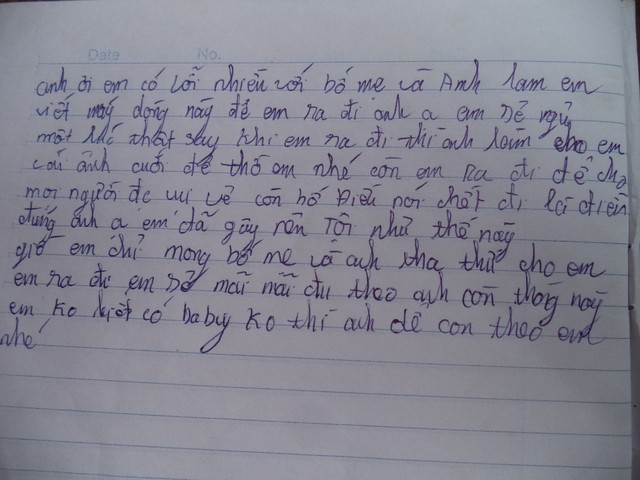 Date No.
anh ơi em có lỗi nhiều với bố mẹ và Anh lam em
viết mấy dòng này để em ra đi anh a em sẽ ngủ
một lúc thật say khi em ra đi thì anh làm cho em
cái ảnh cưới để thờ em nhé còn em ra đi để cho
mọi người đc vui vẻ còn bố Điều nói chết đi là điều
đúng anh a em đã gây nên Tội như thế này
giờ em chỉ mong bố mẹ và anh tha thứ cho em
em ra đi em sẽ mãi mãi đi theo anh còn tháng này
em ko biết có baby ko thì anh để con theo em
nhé